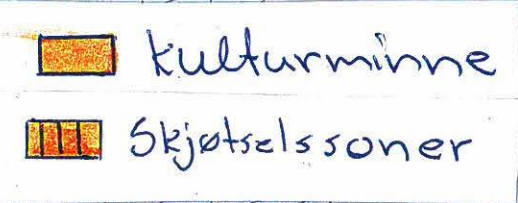 kulturminne
Skjøtselssoner